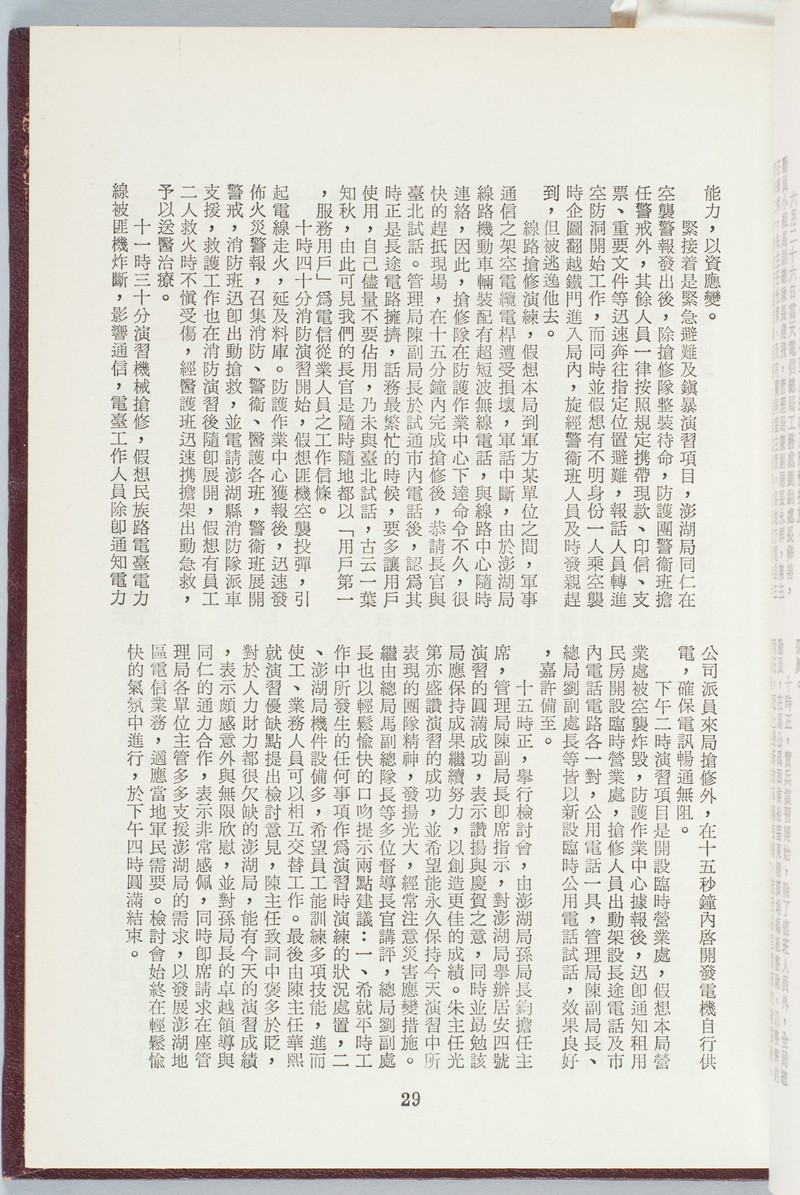 能力，以資應變。
緊接着是緊急避難及鎭暴演習項目，澎湖局同仁在
空襲警報發出後，除搶修隊整裝待命，防護團警衞班擔
任警戒外，其餘人員一律按照規定携帶現款、印信、支
票、重要文件等迅速奔往指定位置避難，報話人員轉進
空防洞開始工作，而同時並假想有不明身份一人乘空襲
時企圖翻越鐵門進入局內，旋經警衞班人員及時發覩趕
到，但被逃逸他去。
線路搶修演練，假想本局到軍方某單位之間，軍事
通信之架空電纜電桿遭受損壞，軍話中斷，由於澎湖局
線路機動車輛裝配有超短波無線電話，與線路中心隨時
連絡，因此，搶修隊在防護作業中心下達命令不久，很
快的趕抵現場，在十五分鐘內完成搶修後，恭請長官與
臺北試話。管理局陳副局長於試通市內電話後，認爲其
時正是長途電路擁擠，話務最繁忙的時候，要多讓用戶
使用，自己儘量不要佔用，乃未與臺北試話，古云一葉
知秋，由此可見我們的長官是隨時隨地都以「用戶第一
，服務用戶」爲電信從業人員之工作信條。
十時四十分消防演習開始，假想匪機空襲投彈，引
起電線走火，延及料庫。防護作業中心獲報後，迅速發
佈火災警報，召集消防、警衞、醫護各班，警衞班展開
警戒，消防班迅卽出動搶救，並電請澎湖縣消防隊派車
支援，救護工作也在消防演習後隨卽展開，假想有員工
二人救火時不愼受傷，經醫護班迅速携擔架出動急救，
予以送醫治療。
十一時三十分演習機械搶修，假想民族路電臺電力
線被匪機炸斷，影響通信，電臺工作人員除卽通知電力
公司派員來局搶修外，在十五秒鐘內啓開發電機自行供
電，確保電訊暢通無阻。
下午二時演習項目是開設臨時營業處，假想本局營
業處被空襲炸毀，防護作業中心據報後，迅卽通知租用
民房開設臨時營業處，搶修人員出動架設長途電話及市
內電話電路各一對，公用電話一具，管理局陳副局長、
總局劉副處長等皆以新設臨時公用電話試話，效果良好
，嘉許備至。
十五時正，舉行檢討會，由澎湖局孫局長鈞擔任主
席，管理局陳副局長卽席指示，對澎湖局舉辦居安四號
演習的圓滿成功，表示讚揚與慶賀之意，同時並勗勉該
局應保持成果繼續努力，以創造更佳的成績。朱主任光
第亦盛讚演習的成功，並希望能永久保持今天演習中所
表現的團隊精神，發揚光大，經常注意災害應變措施。
繼由總局馬副總隊長等多位督導長官講評，總局劉副處
長也以輕鬆愉快的口吻提示兩點建議：一、希就平時工
作中所發生的任何事項作爲演習時演練的狀況處置，二
、澎湖局機件設備多，希望員工能訓練多項技能，進而
使工、業務人員可以相互交替工作。最後由陳主任華熙
就演習優缺點提出檢討意見，陳主任致詞中褒多於貶，
對於人力財力都很欠缺的澎湖局，能有今天的演習成績
，表示頗感意外與無限欣慰，並對孫局長的卓越領導與
同仁的通力合作，表示非常感佩，同時卽席請求在座管
理局各單位主管多多支援澎湖局的需求，以發展澎湖地
區電信業務，適應當地軍民需要。檢討會始終在輕鬆愉
快的氣氛中進行，於下午四時圓滿結束。
29